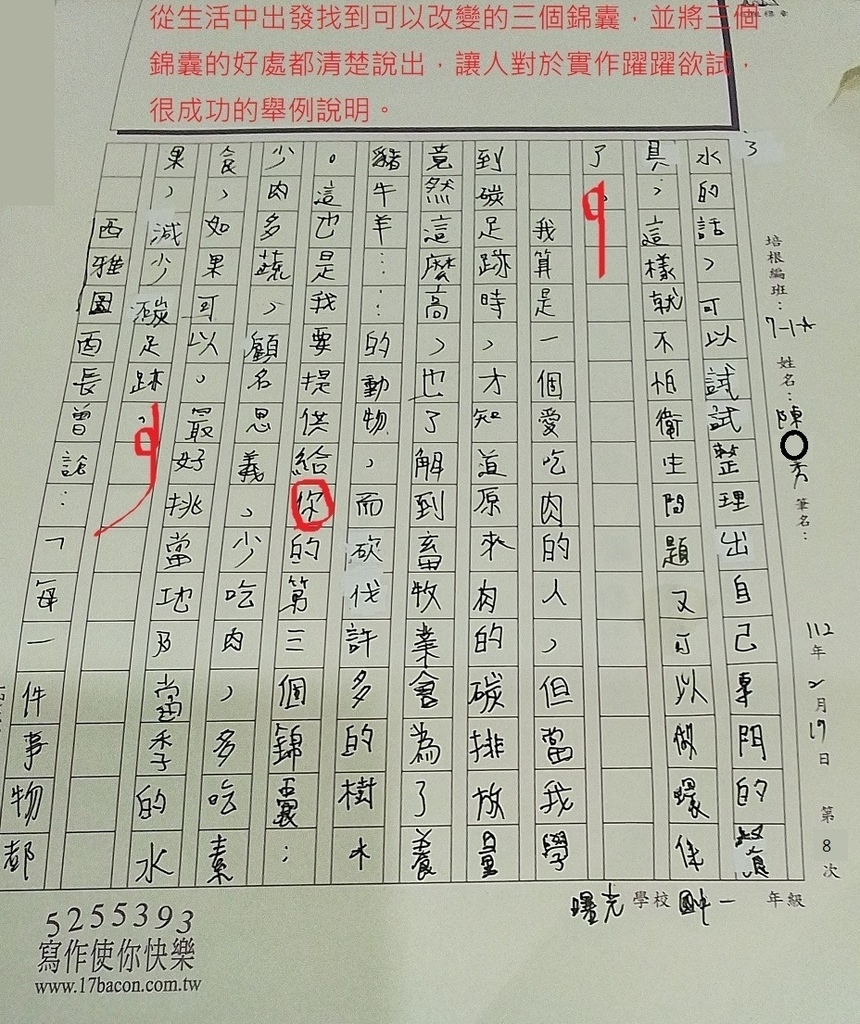 從生活中出發找到可以改變的三個錦囊，並將三個
錦囊的好處都清楚說出，讓人對於實作躍躍欲試，
很成功的舉例說明。
3
培根編班：7-1-A 姓名：陳 秀 筆名：
112年2月19日 第8次
水的話，可以試試整理出自己專門的餐
具，這樣就不怕衛生問題又可以做環保
了。
我算是一個愛吃肉的人，但當我學
到碳足跡時，才知道原來肉的碳排放量
竟然這麼高，也了解到畜牧業會為了養
豬牛羊……的動物，而砍伐許多的樹木
。這也是我要提供給你的第三個錦囊：
少肉多蔬，顧名思義，少吃肉，多吃素
食，如果可以，最好挑當地乃當季的水
果，減少碳足跡。
西雅圖酋長曾說：「每一件事物都
曙光學校 國中一 年級
5255393
寫作使你快樂
www.17bacon.com.tw